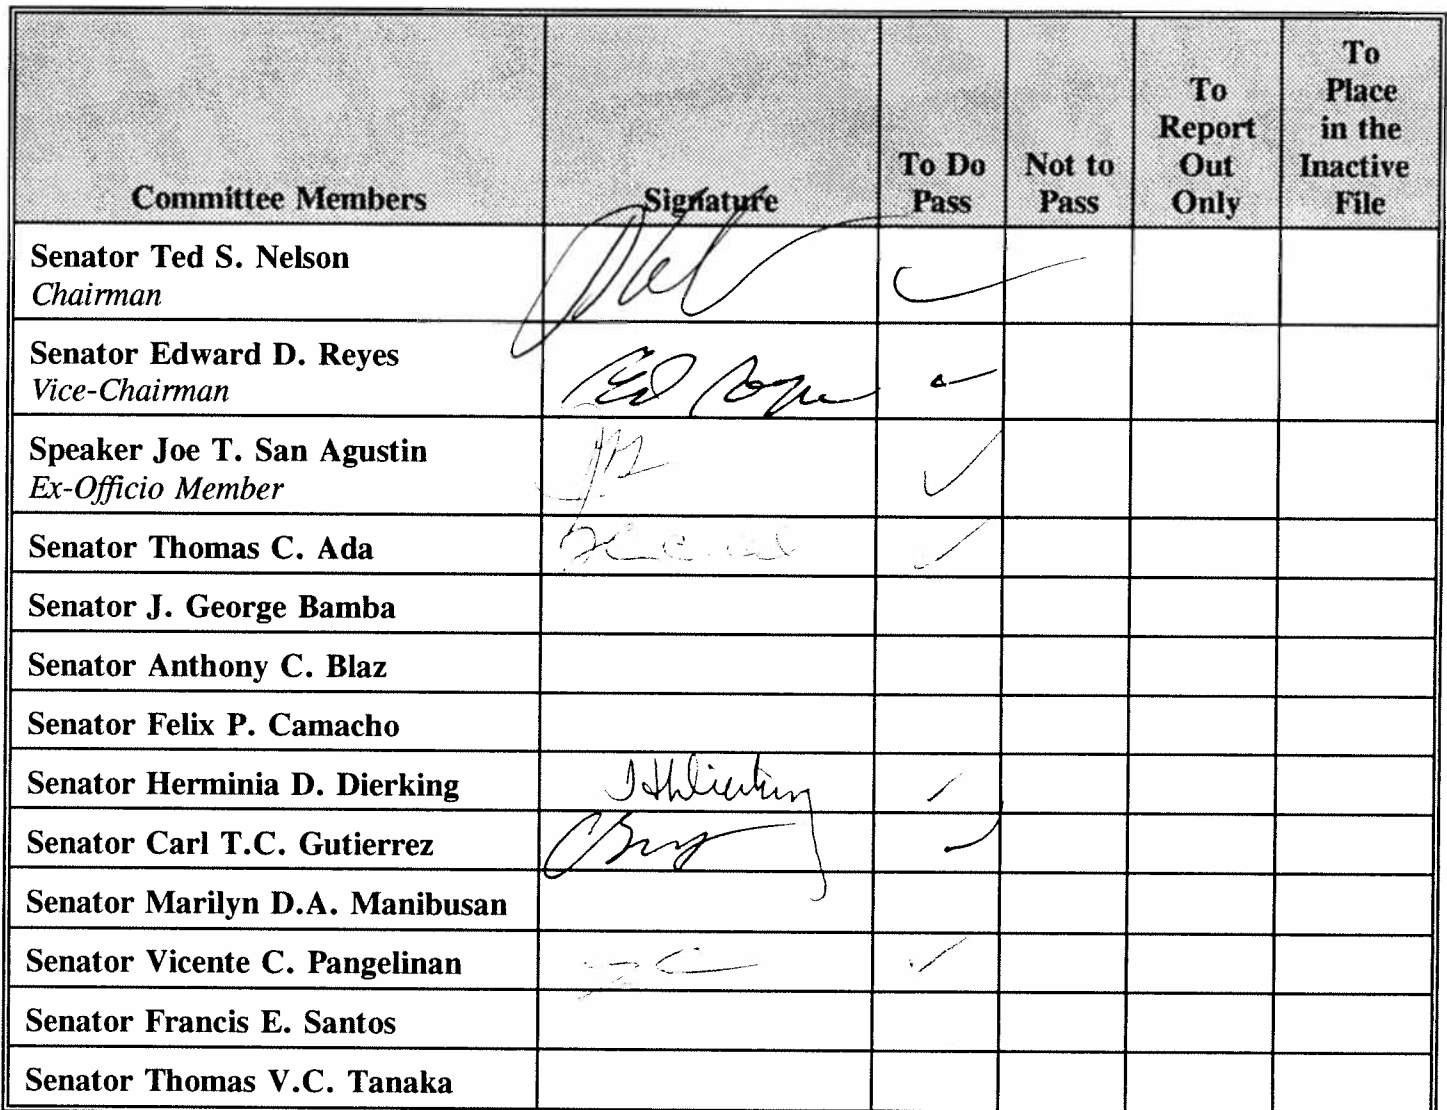 Committee Members Signature To Do Pass Not to Pass To Report Out Only To Place in the Inactive File
Senator Ted S. Nelson
Chairman
Senator Edward D. Reyes
Vice-Chairman
Speaker Joe T. San Agustin
Ex-Officio Member
Senator Thomas C. Ada
Senator J. George Bamba
Senator Anthony C. Blaz
Senator Felix P. Camacho
Senator Herminia D. Dierking
Senator Carl T.C. Gutierrez
Senator Marilyn D.A. Manibusan
Senator Vicente C. Pangelinan
Senator Francis E. Santos
Senator Thomas V.C. Tanaka